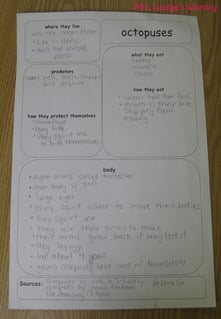 Mrs. Lodge's Library
where they live
• on the ocean floor
• live in dens
• dens but a cold
place
octopuses
predators
eels, seals, sharks
and dolphins
what they eat
• crabs
• mussels
• clams
how they protect themselves
• camouflage
• they hide
• they squirt ink
to hide themselves
how they eat
• suckers hold their food
• venom in their bite
stop prey from
moving
body
• eight arms, called tentacles
• their body is
• large eyes
• they squirt water to move their bodies
• they squirt ink
• they use their arms to move
• their arms grow back if they lose it
• they lay eggs
• live about 4 years
• young octopuses take care of themselves
Sources:
Octopuses by Lola M. Schaefer
Octopuses by
The Amazing Octopus
PebbleGo